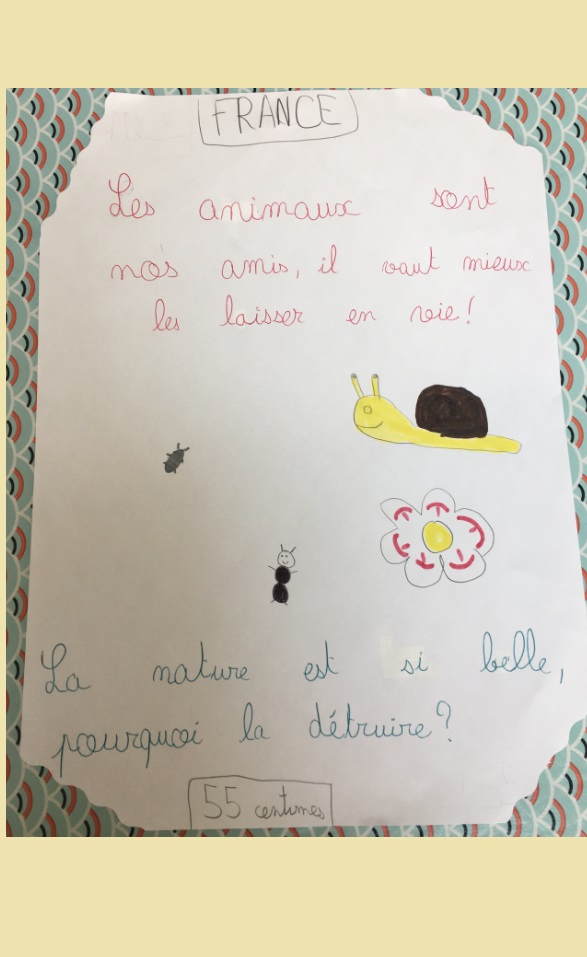 FRANCE
Les animaux sont
nos amis, il vaut mieux
les laisser en vie !
La nature est si belle,
pourquoi la détruire ?
55 centimes